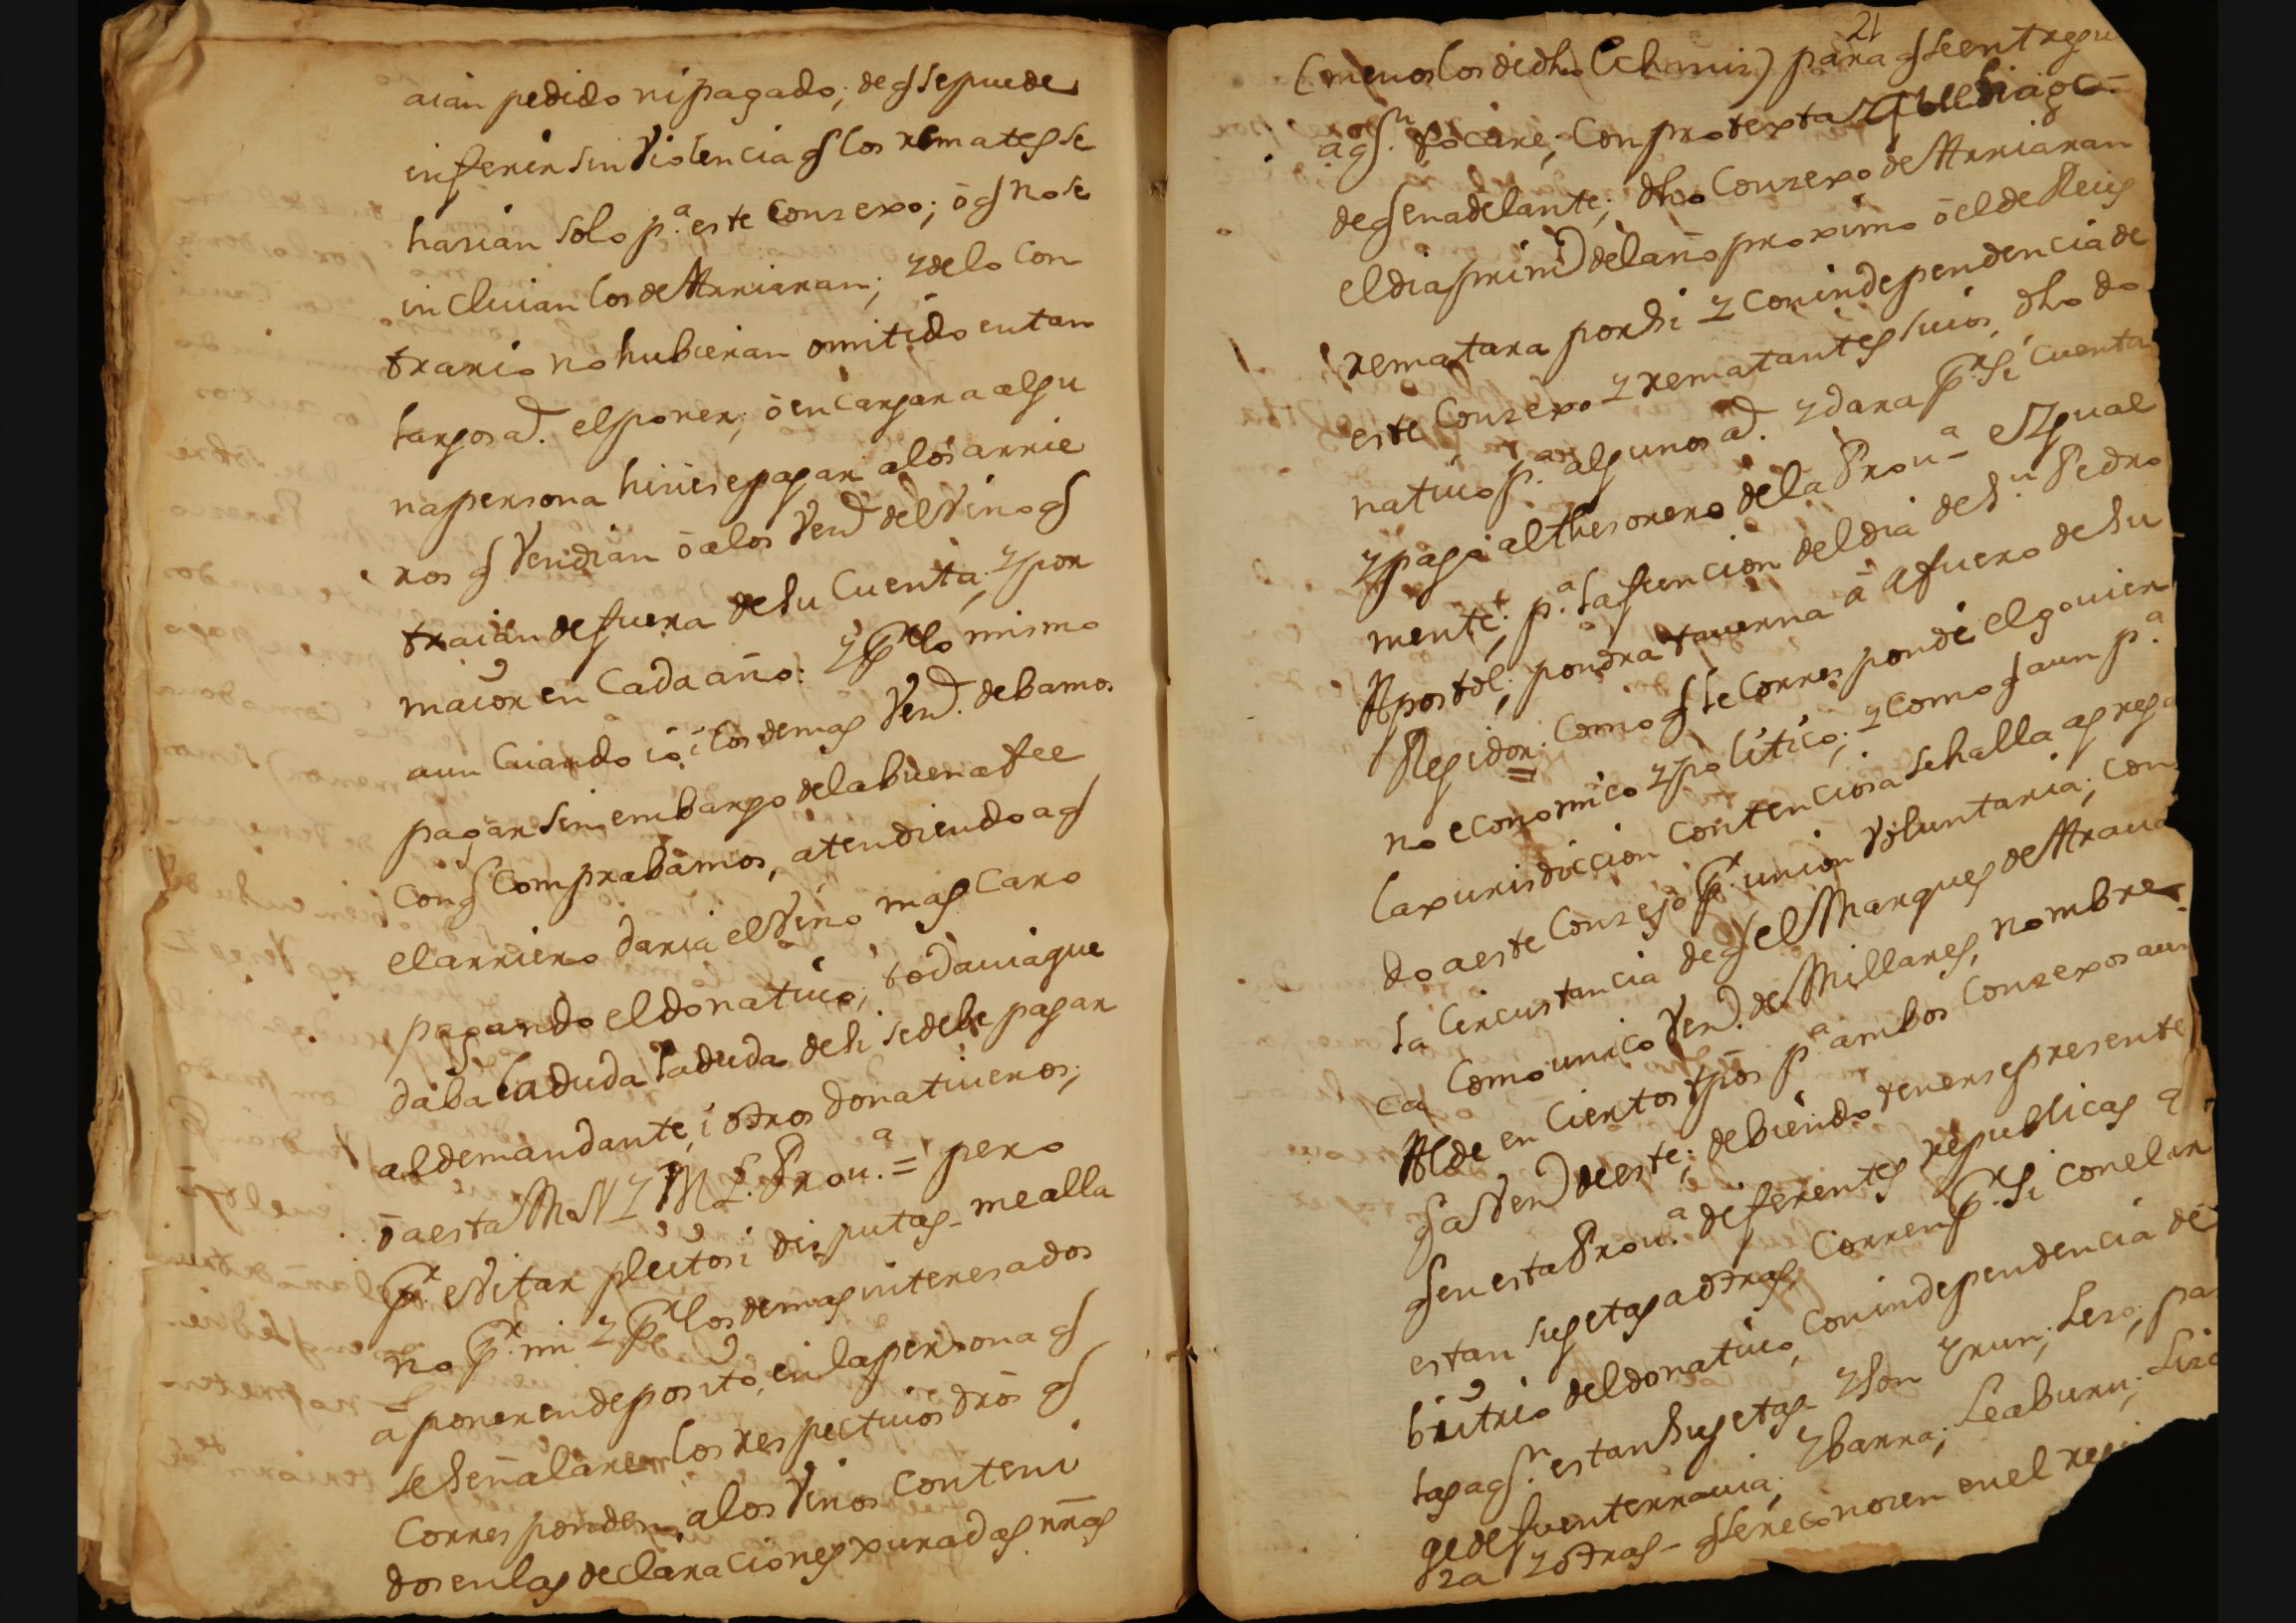 aian pedido ni pagado; de q̃ se puede
inferir sin Violencia q̃ los rematesse
harian solo p.ª este Conzexo; ō q̃ No se
incluian los de Arriaran; y de lo Con
trario no hubieran omitido en tan
targos a.ᵈ el poner; ō encargar a algu
na persona hiciese pagar alos arrie
ros q̃ Vendian ō alos Venᵈ del Vino q̃
traian de fuera de su Cuenta; y por
maior en Cada año: y pʳ lo mismo
aun Cuando io i los demas Venᵈ. debamos
pagar sin embargo dela buena fee
Con q̃ Comprabamos, atendiendo a q̃
el arriero daria el Vino mas Caro
pagando el donativo; todavia que
daba la duda la duda de si se debe pagar
al demandante, i otros donativeros;
ō a esta M. N. Y M. L. Prov.ª = pero
pʳ eVitar pleitos i disputas - me alla
no pʳ mi y pʳ los demas interesados
ā poner en deposito, en la persona q̃
se señalare los respectivos drōs q̃
Corresponden, alos Vinos Conteni
dos en las declaraciones xuradas nrās
21
(menos los de dho Echaniz) para q̃ se entregu
a q.ⁿ tocare; Con protexta q̃
de q̃ en adelante; dho Conzexo de Arriaran
el dia primᵒ del año proximo ō el de Reies
rematara por si y Con independencia de
este Conzexo y rematantes suios, dho do
nativo pʳ algunos a.ᵈ y dara pʳ si cuenta
y pago al thesorero de la Prou.ª e Ygual
mente; p.ª la funcion del dia de S.ⁿ Pedro
Apostol; pondra taverna ā Afuero de su
Regidor: Como q̃ le Corresponde el govier
no economico y politico; y Como q̃ aun p.ª
la xurisdiccion Contenciosa se halla agrega
do a este Conzejo pʳ union Voluntaria; Con
la Circustancia de q̃ el Marques de Arava
ca Como unico Venᵈ. de Millares, nombre
Alde en Ciertos tpōs p.ª ambos Conzexos aun
q̃ a Venᵈ de este; debiendo tenerse presente
q̃ en esta Prou.ª diferentes republicas q̃
estan sugetas a otras, Corren pʳ. Si Con el ar
bitrio del donativo, Con independencia de
las a q.ⁿ estan Sugetas - y Son Yrun; Lezo; pa
ge de fuenterravia; Ybarra; Leaburu; Liza
za y otras - q̃ se reconocen en el regi